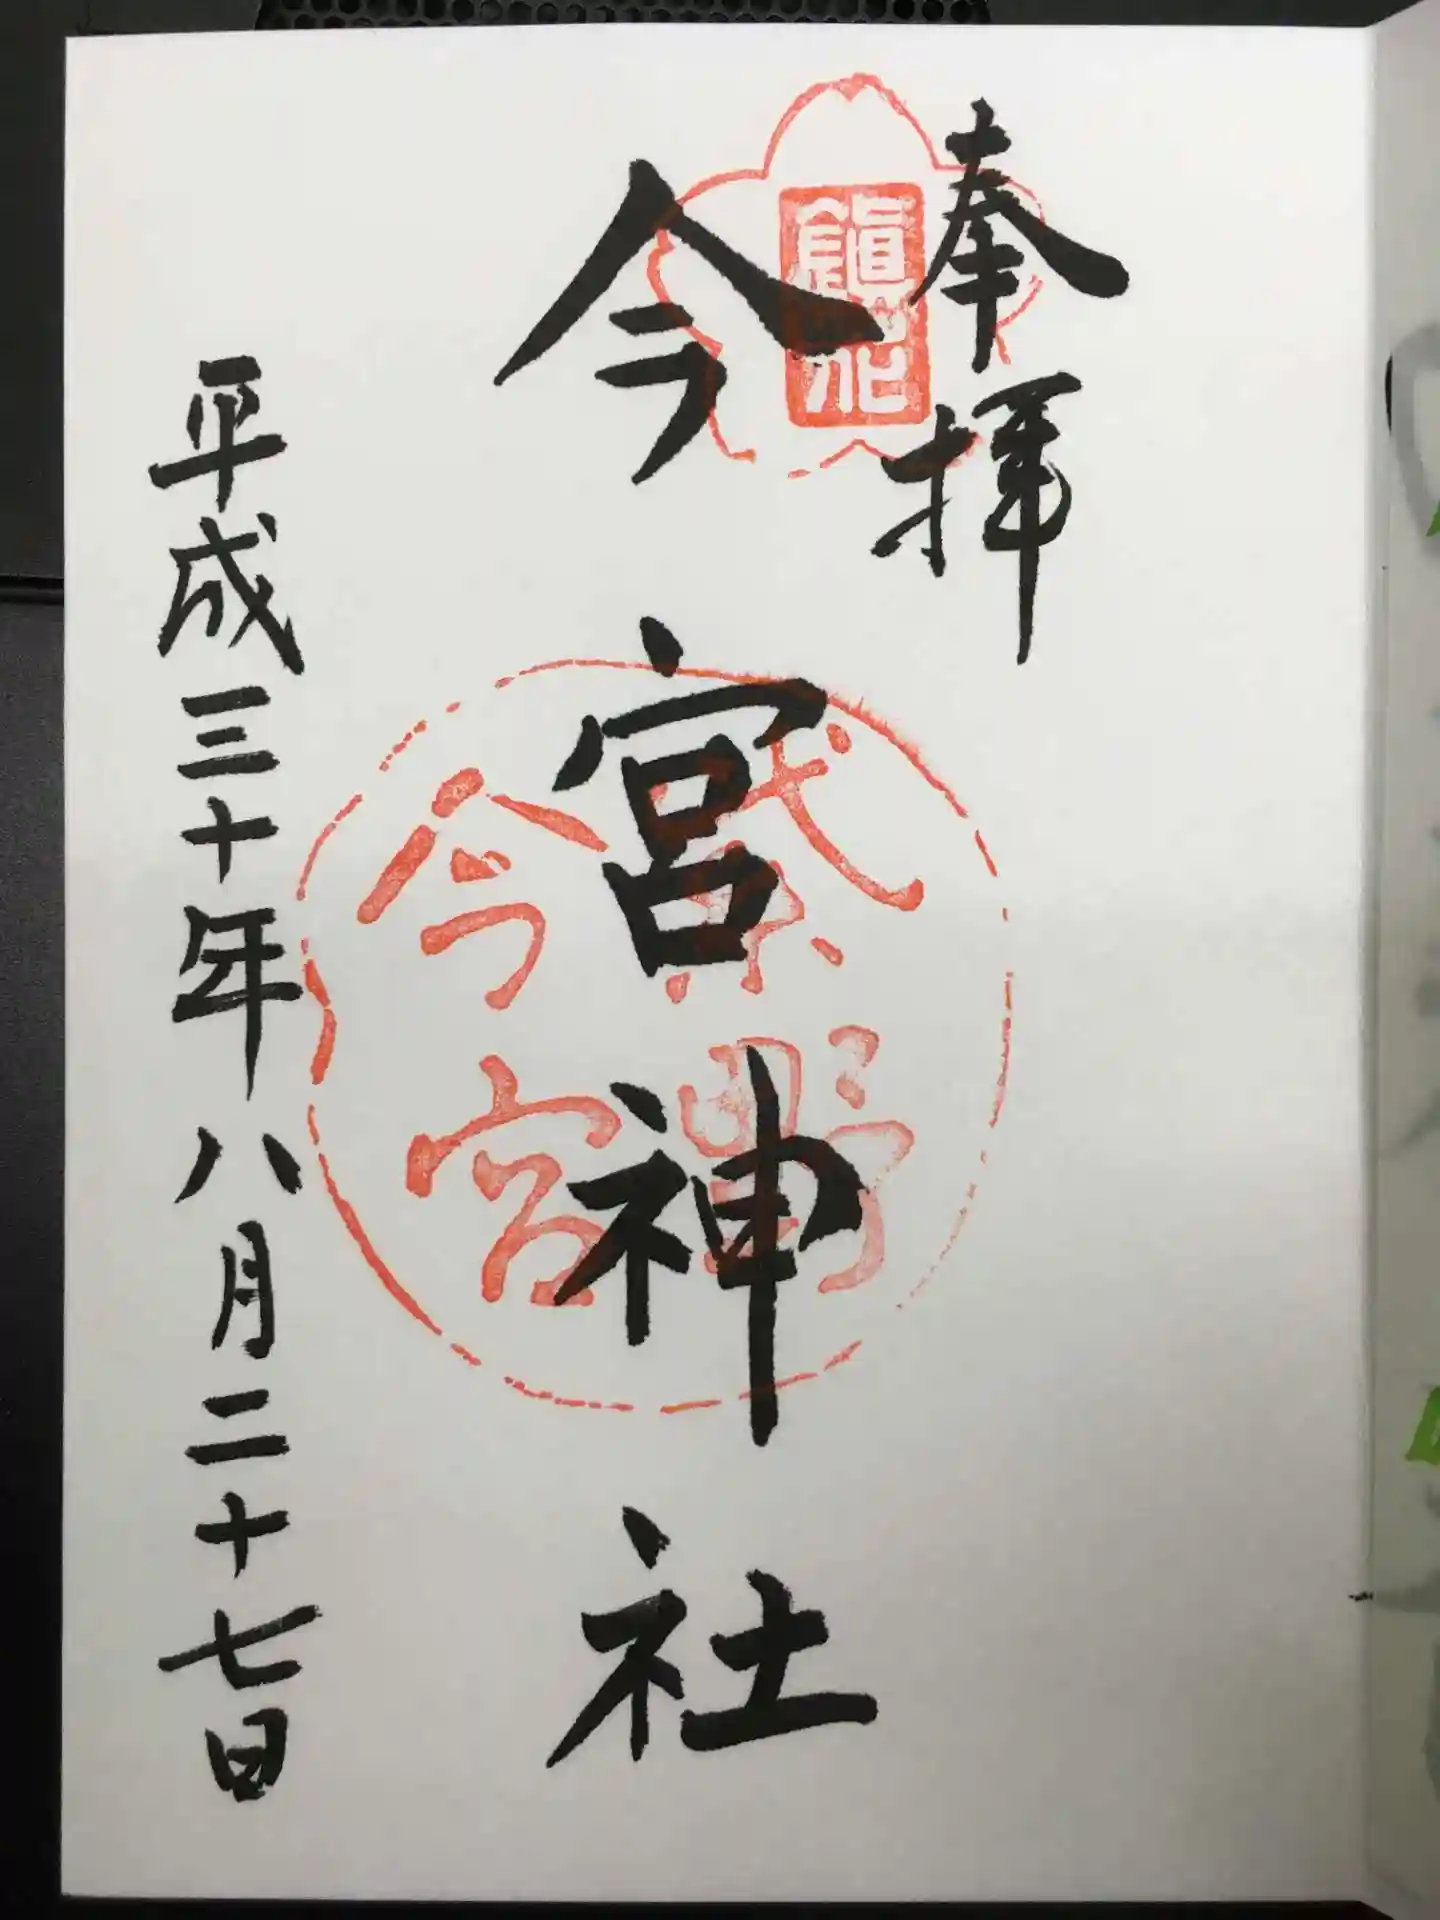 奉拝
鎮花
今宮神社
紫野
今宮
平成三十年八月二十七日